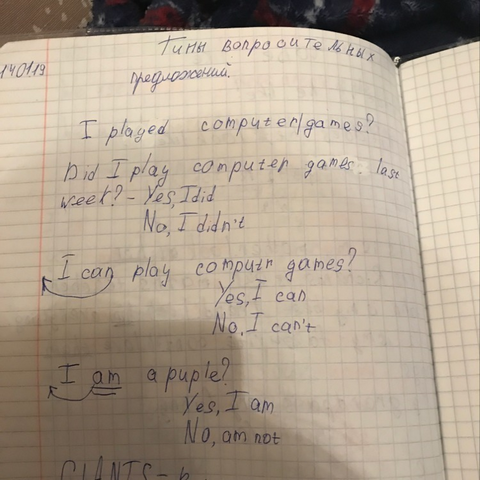 140119
Типы вопросительных
предложений.
I played computer/games?
Did I play computer games. last
week? - Yes, I did
No, I didn't
I can play computr games?
Yes, I can
No, I can't
I am a puple?
Yes, I am
No, am not